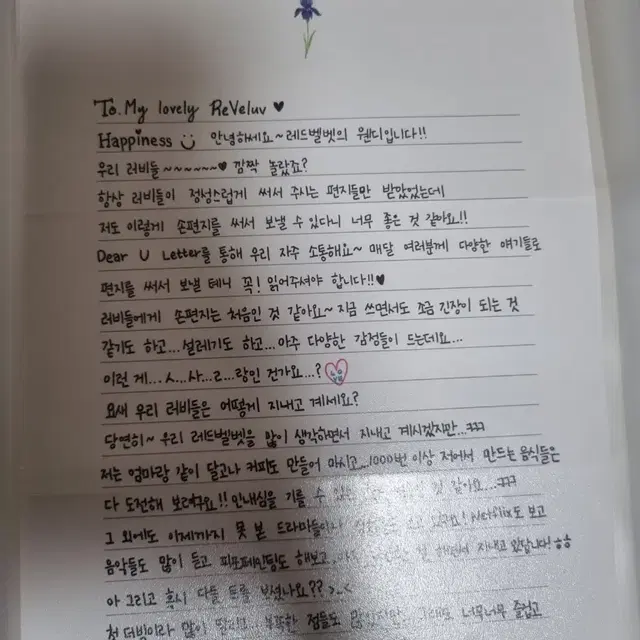 To. My lovely ReVeluv ♥
Happiness 안녕하세요~ 레드벨벳의 웬디입니다!!
우리 러비들~~~~~~♥ 깜짝 놀랐죠?
항상 러비들이 정성스럽게 써서 주시는 편지들만 받았었는데
저도 이렇게 손편지를 써서 보낼 수 있다니 너무 좋은 것 같아요!!
Dear U Letter를 통해 우리 자주 소통해요~ 매달 여러분께 다양한 얘기들로
편지를 써서 보낼 테니 꼭! 읽어주셔야 합니다!!♥
러비들에게 손편지는 처음인 것 같아요~ 지금 쓰면서도 조금 긴장이 되는 것
같기도 하고...설레기도 하고...아주 다양한 감정들이 드는데요...
이런 게...ㅅ...사...ㄹ...랑인 건가요...?
요새 우리 러비들은 어떻게 지내고 계세요?
당연히~ 우리 레드벨벳을 많이 생각하면서 지내고 계시겠지만...ㅋㅋㅋ
저는 엄마랑 같이 달고나 커피도 만들어 마시고...1000번 이상 저어서 만드는 음식들은
다 도전해 보려구요!! 인내심을 기를 수 있는 것 같아요...ㅋㅋㅋ
그 외에도 아제까지 못 본 드라마들이나 Netflix도 보고
음악들도 많이 듣고 피포페인팅도 해보고, 하면서 지내고 있답니다! ㅎㅎ
아 그리고 혹시 다들 들 보셨나요?? >.<
첫 데뷔이라 많이 떨리고 부족한 점들도 많았지만 너무너무 즐겁고